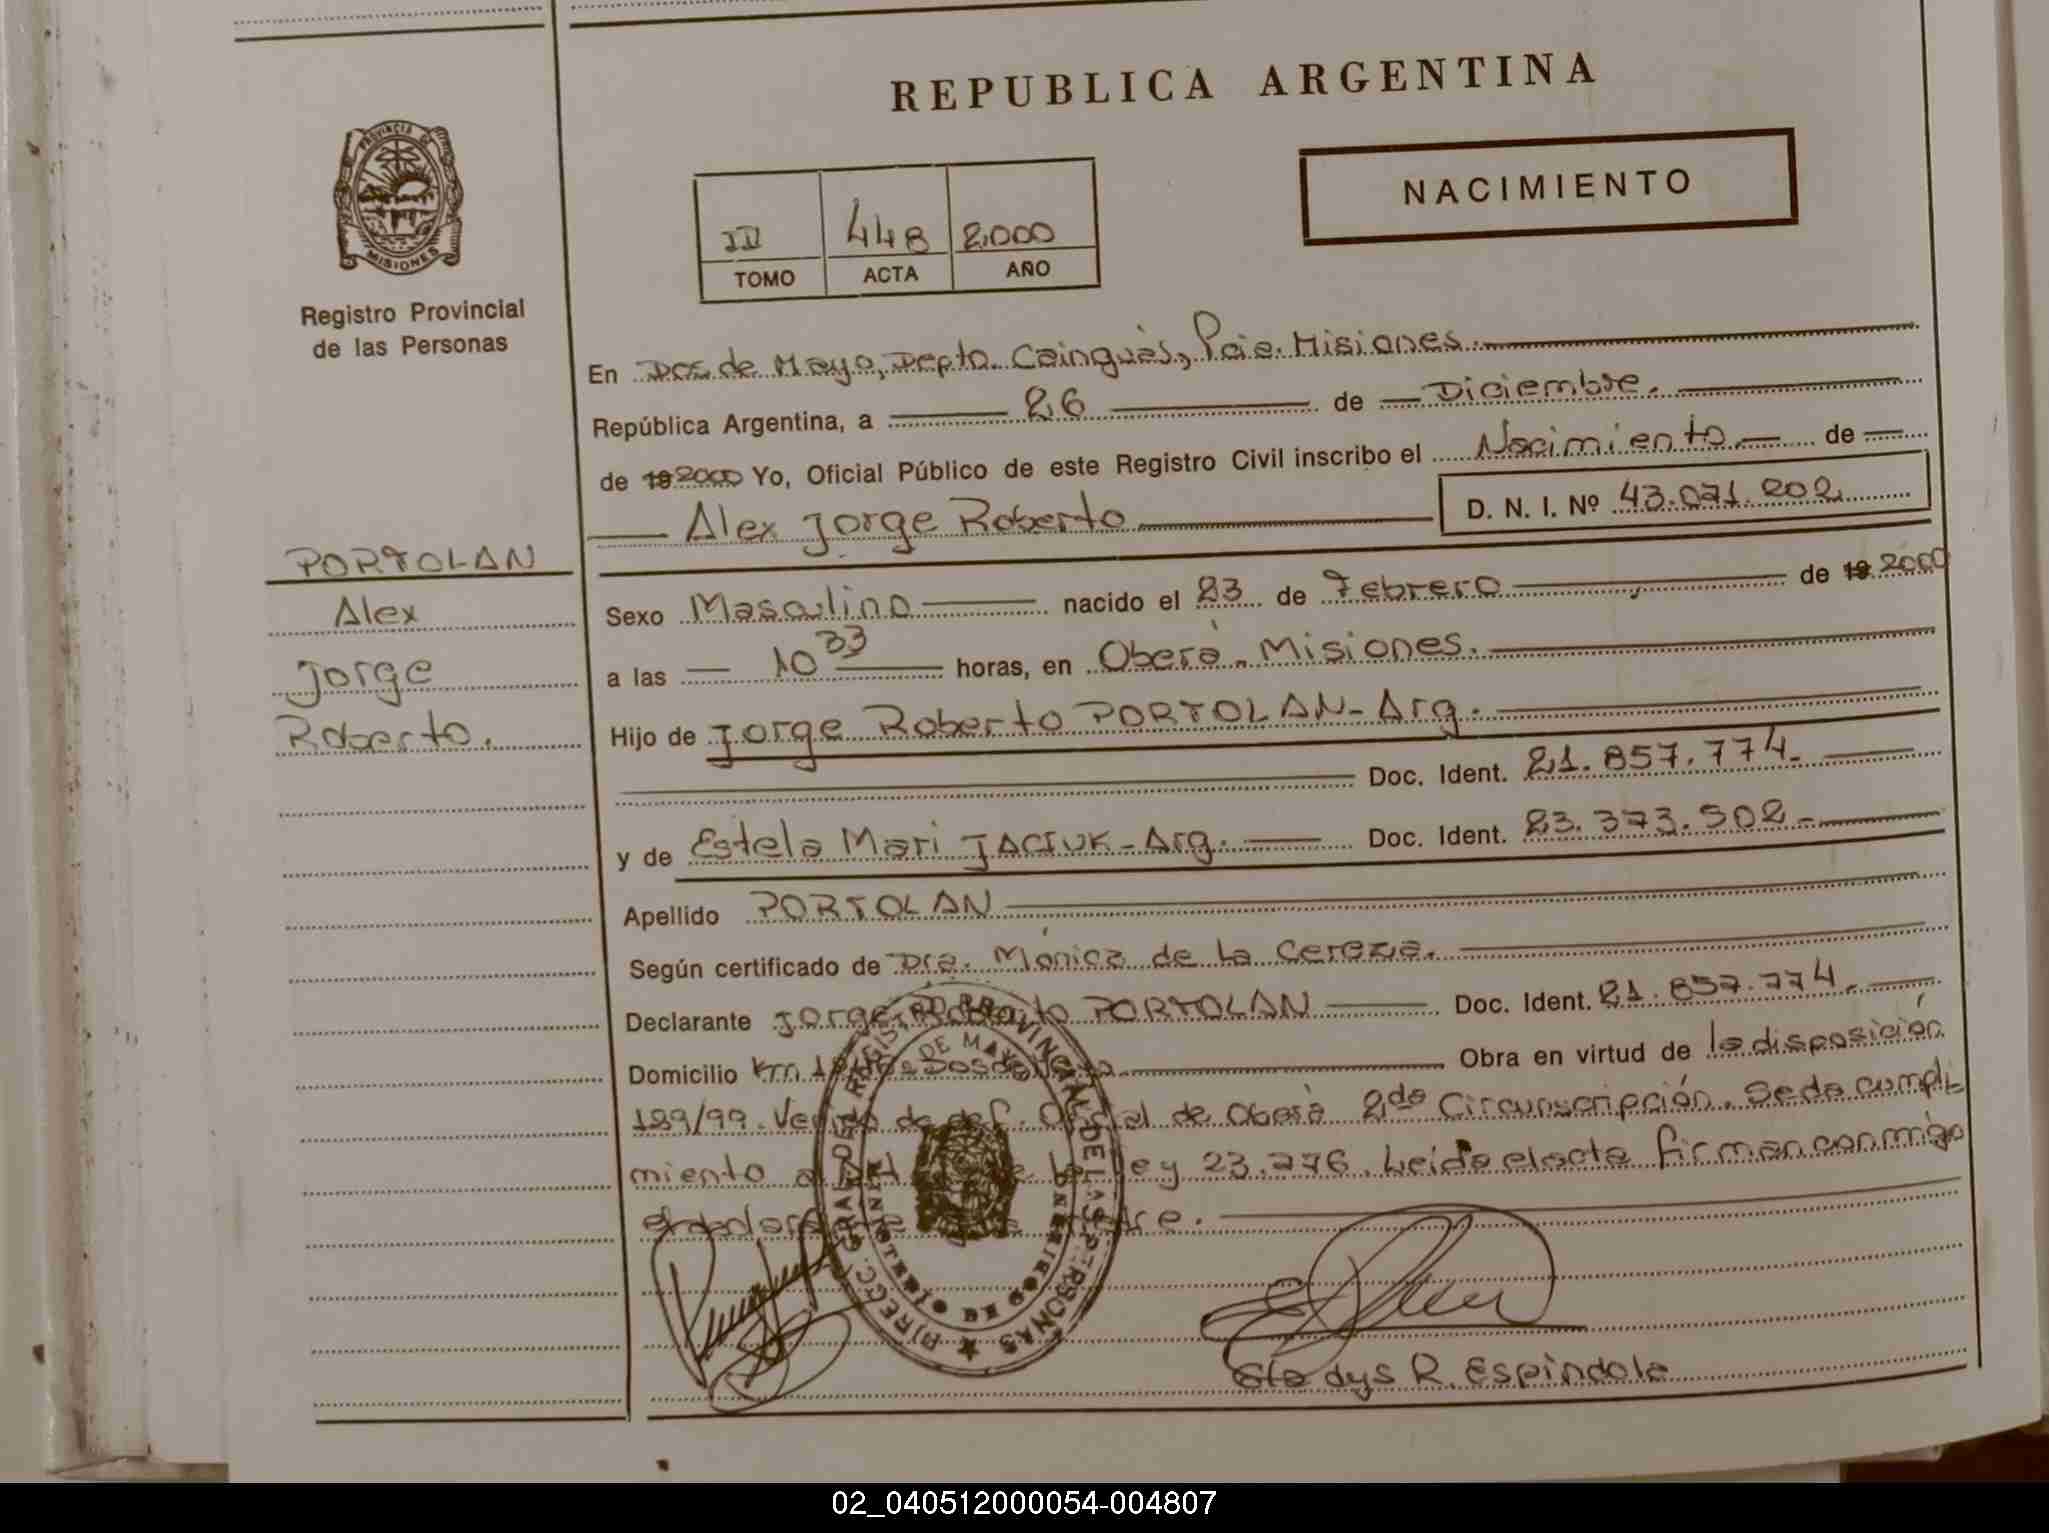 REPUBLICA ARGENTINA
NACIMIENTO
PROVINCIA DE
MISIONES
Registro Provincial
de las Personas
III 448 2.000
TOMO ACTA AÑO
En Dos de Mayo, Depto. Cainguás, Pcia. Misiones.
República Argentina, a 26 de Diciembre.
de 19 2000 Yo, Oficial Público de este Registro Civil inscribo el Nacimiento de
Alex Jorge Roberto D. N. I. Nº 43.071.202
PORTOLAN
Alex
Jorge
Roberto.
Sexo Masculino nacido el 23 de Febrero de 19 2000
a las 10 33 horas, en Oberá - Misiones.
Hijo de Jorge Roberto PORTOLAN - Arg.
Doc. Ident. 21.857.774.-
y de Estela Mari JACIUK - Arg. Doc. Ident. 23.373.502.-
Apellido PORTOLAN
Según certificado de Dra. Mónica de la Cerezia.
Declarante Jorge Roberto PORTOLAN Doc. Ident. 21.857.774.-
Domicilio Km Dos de Mayo Obra en virtud de la disposición
199/99. de Oberá 2da Circunscripción. Se da cumpli-
miento al Ley 23.776. Leida el acta firman conmigo
el declarante
DIRECC. GRAL. DEL REGISTRO PROVINCIAL DE LAS PERSONAS
DOS DE MAYO
Gladys R. Espíndola
02_040512000054-004807